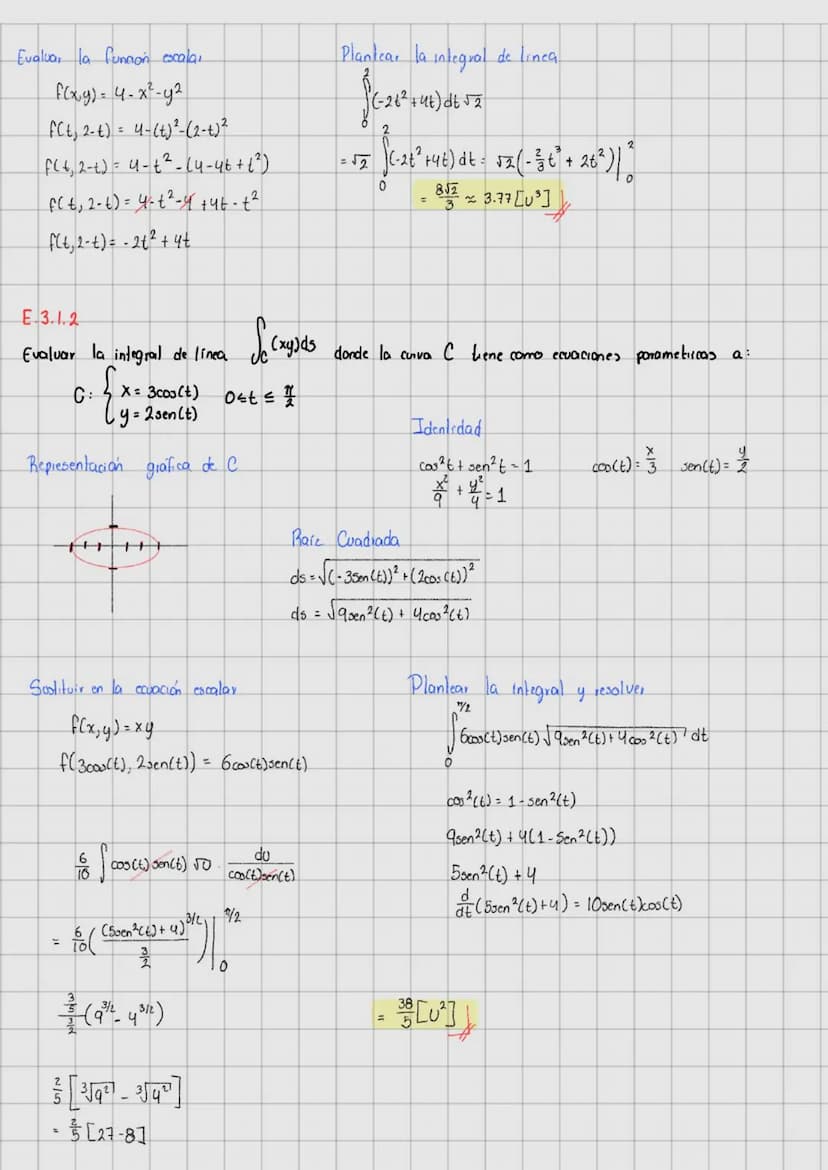 Evaluar la función escalar
f(x,y) = 4 - x² - y²
f(t, 2-t) = 4 - (t)² - (2-t)²
f(t, 2-t) = 4 - t² - (4 - 4t + t²)
f(t, 2-t) = 4 - t² - 4 + 4t - t²
f(t, 2-t) = -2t² + 4t
Plantear la integral de línea
∫₀² (-2t² + 4t) dt √2
= √2 ∫₀² (-2t² + 4t) dt = √2 (-2/3 t³ + 2t²) |₀²
= 8√2/3 ≈ 3.77 [U³]
E.3.1.2
Evaluar la integral de línea ∫_C (xy)ds donde la curva C tiene como ecuaciones parametricas a:
C: { x = 3cos(t)
y = 2sen(t) 0 ≤ t ≤ π/2
Identidad
cos²t + sen²t = 1 cos(t) = x/3 sen(t) = y/2
x²/9 + y²/4 = 1
Representación gráfica de C
Raíz Cuadrada
ds = √((-3sen(t))² + (2cos(t))²)
ds = √(9sen²(t) + 4cos²(t))
Sustituir en la ecuación escalar
f(x,y) = xy
f(3cos(t), 2sen(t)) = 6cos(t)sen(t)
Plantear la integral y resolver
∫₀^(π/2) 6cos(t)sen(t) √(9sen²(t) + 4cos²(t)) dt
cos²(t) = 1 - sen²(t)
9sen²(t) + 4(1 - Sen²(t))
5sen²(t) + 4
d/dt (5sen²(t) + 4) = 10sen(t)cos(t)
6/10 ∫ cos(t) sen(t) √U · du/cos(t)sen(t)
= 6/10 ((5sen²(t) + 4)^(3/2) / (3/2)) |₀^(π/2)
(3/5)/(3/2) (9^(3/2) - 4^(3/2))
= 38/5 [U²]
2/5 [∛9² - ∛4²]
= 2/5 [27 - 8]